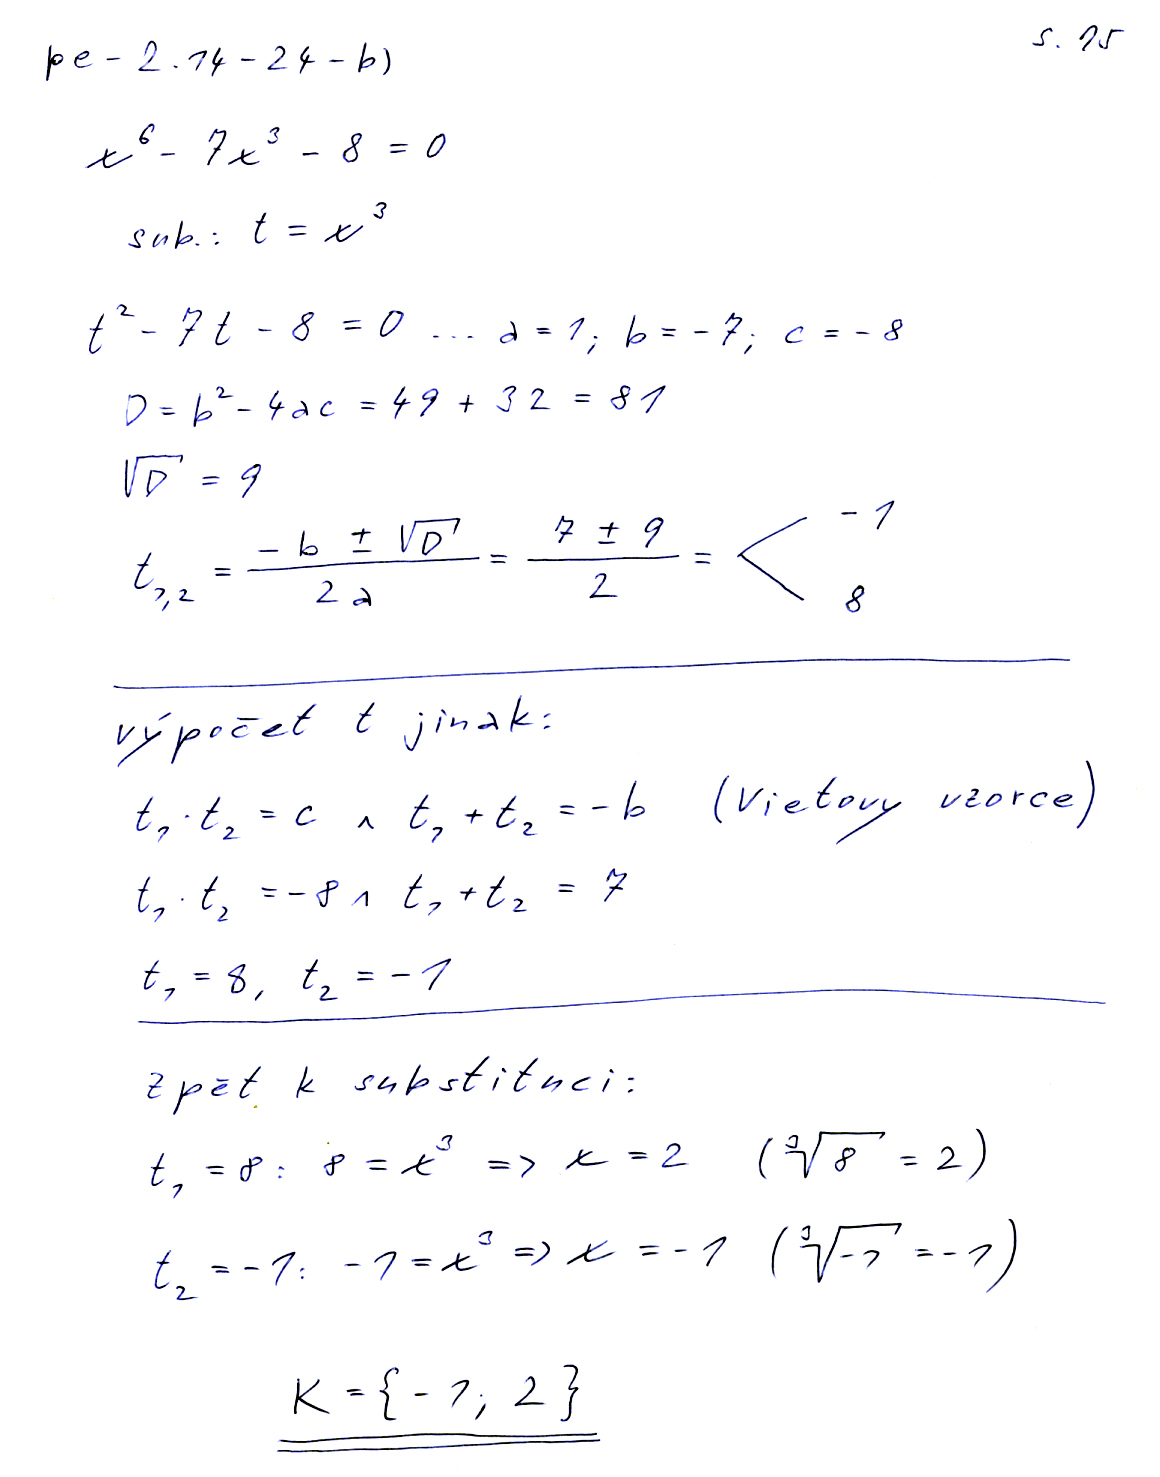 s. 15
pe - 2.14 - 24 - b)
x⁶ - 7x³ - 8 = 0
sub.: t = x³
t² - 7t - 8 = 0 ... a = 1; b = -7; c = -8
D = b² - 4ac = 49 + 32 = 81
√D = 9
t₁,₂ = (-b ± √D)/(2a) = (7 ± 9)/2 = < -1 8
výpočet t jinak:
t₁·t₂ = c ∧ t₁ + t₂ = -b (Vietovy vzorce)
t₁·t₂ = -8 ∧ t₁ + t₂ = 7
t₁ = 8, t₂ = -1
zpět k substituci:
t₁ = 8: 8 = x³ => x = 2 (∛8 = 2)
t₂ = -1: -1 = x³ => x = -1 (∛-1 = -1)
K = {-1; 2}